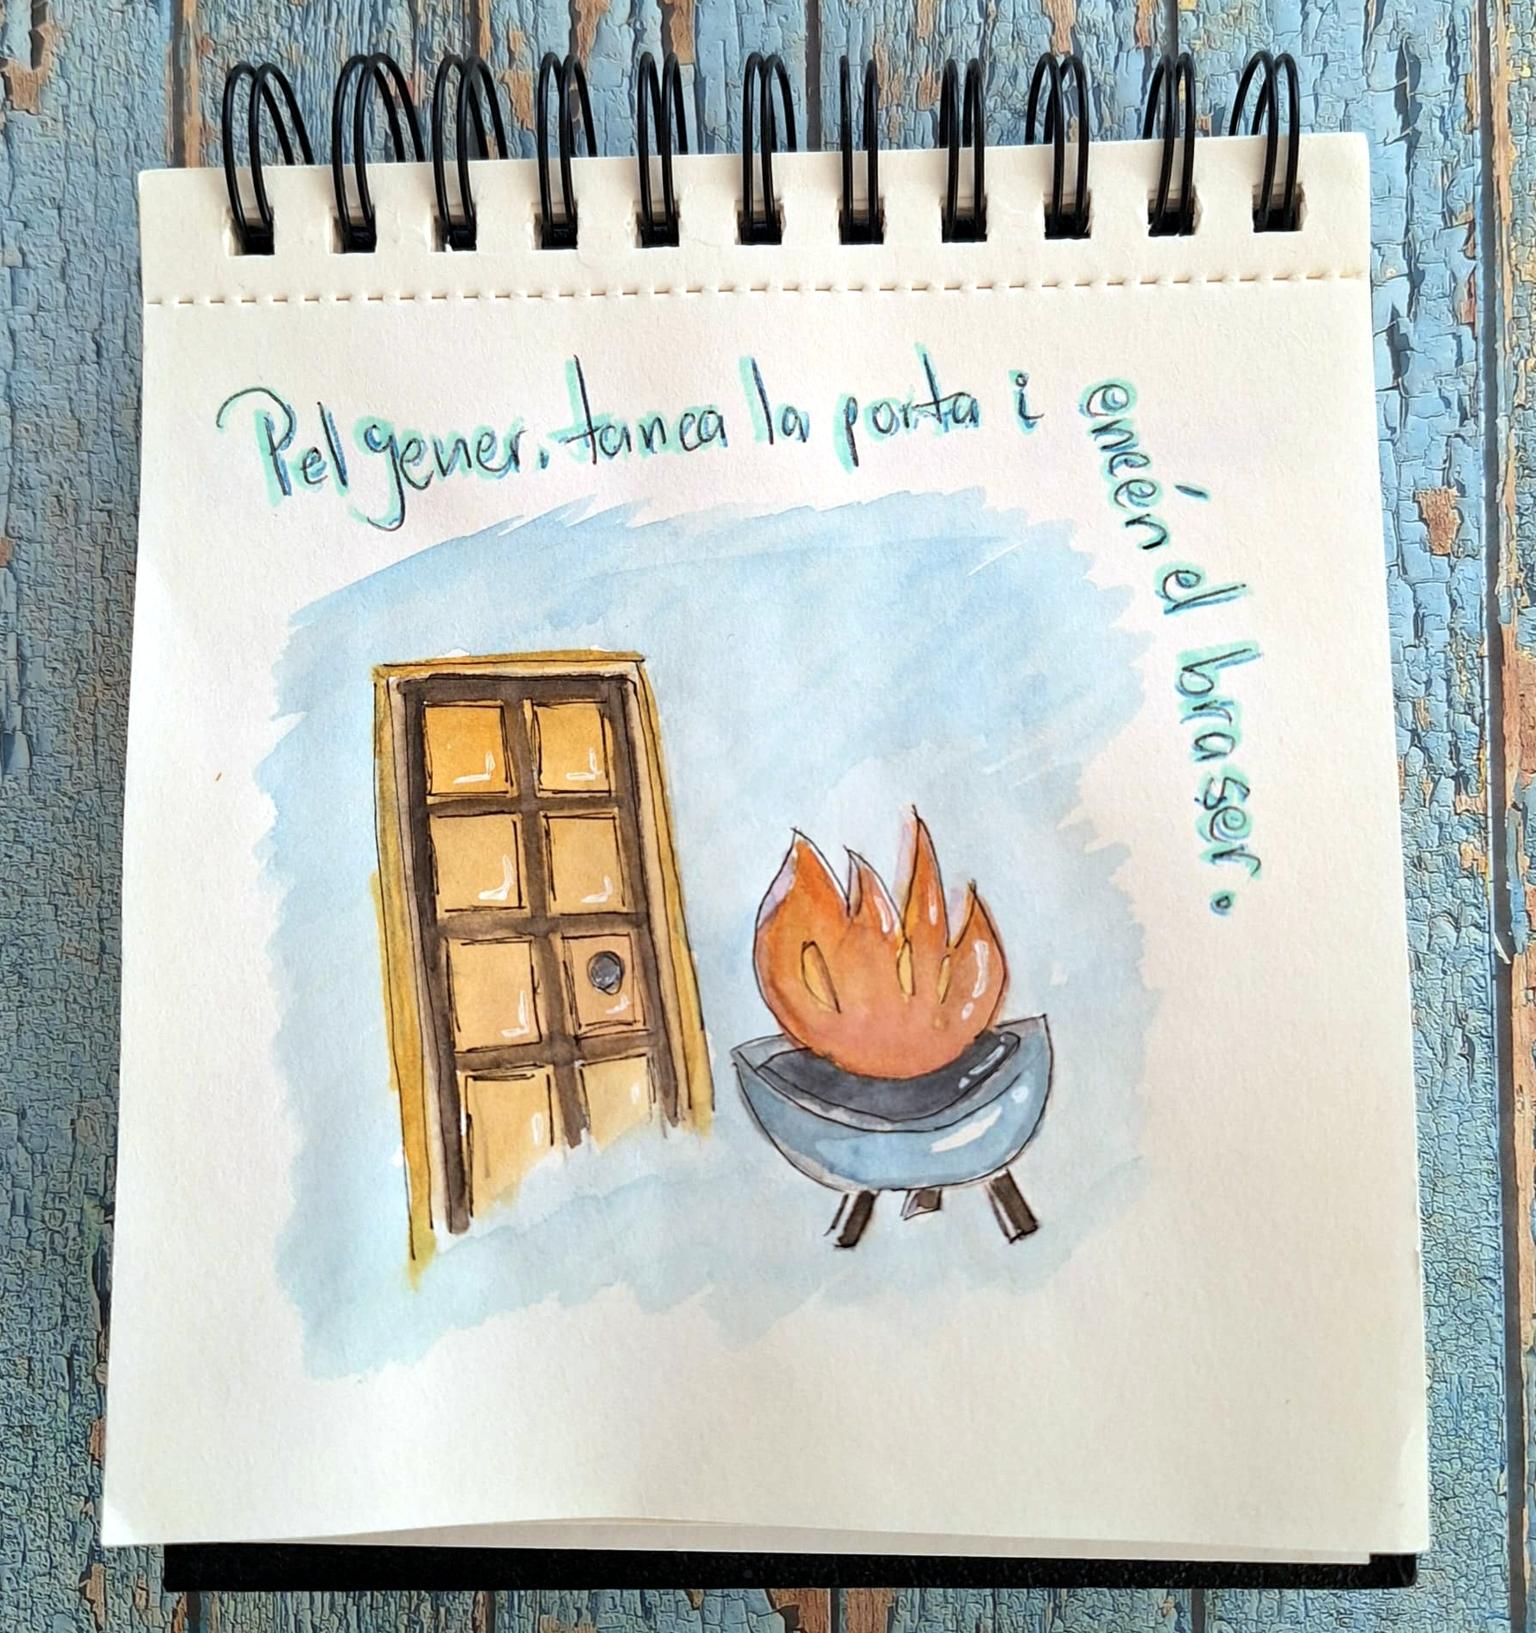 Pel gener, tanca la porta i
encén el braser.